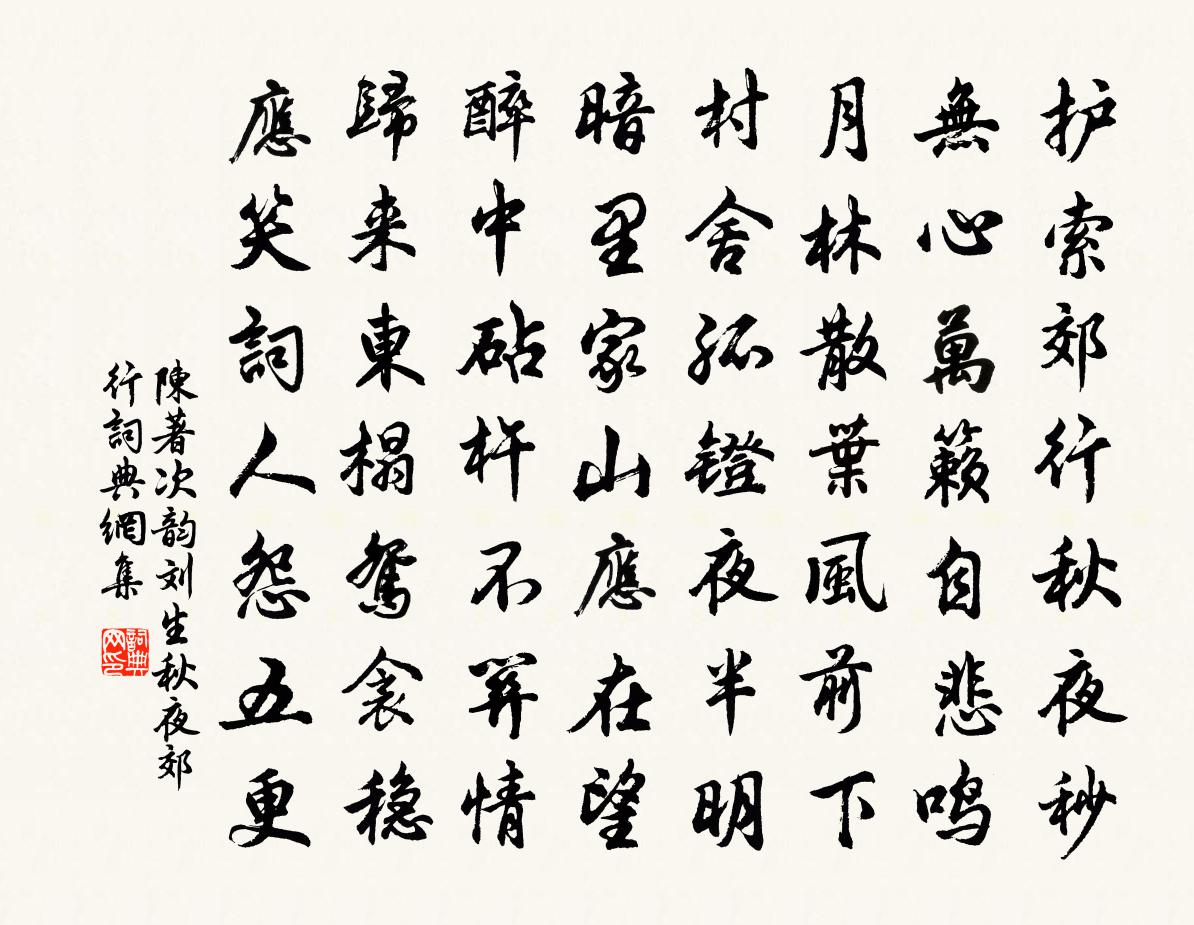 护索郊行秋夜秒
無心萬籟自悲鸣
月林散葉風前下
村舍孤镫夜半明
暗里家山應在望
醉中砧杵不笄情
歸来東榻鴛衾稳
應笑詞人怨五更
陳著次韵刘生秋夜郊
行詞典網集
詞典
网印